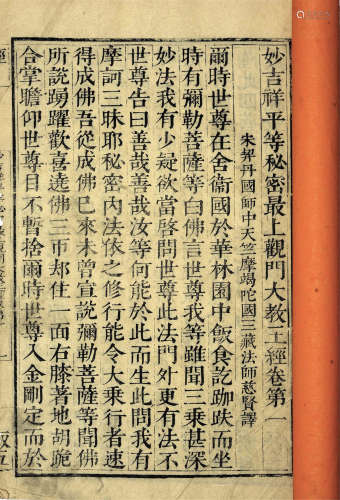 妙吉祥平等秘密最上觀門大教王經卷第一
宋契丹國師中天竺摩竭陀國三藏法師慈賢譯
爾時世尊在舍衛國於華林園中飯食訖跏趺而坐
時有彌勒菩薩等白佛言世尊我等雖聞三乘甚深
妙法我有少疑欲當啓問世尊此法門外更有法不
世尊告曰善哉善哉汝等何能於此而生此問我有
摩訶三昧耶秘密內法依之修行能令大乘行者速
得成佛吾從成佛已來未曾宣說彌勒菩薩等聞佛
所說踴躍歡喜遶佛三帀却住一面右膝著地胡跪
合掌瞻仰世尊目不暫捨爾時世尊入金剛定而於